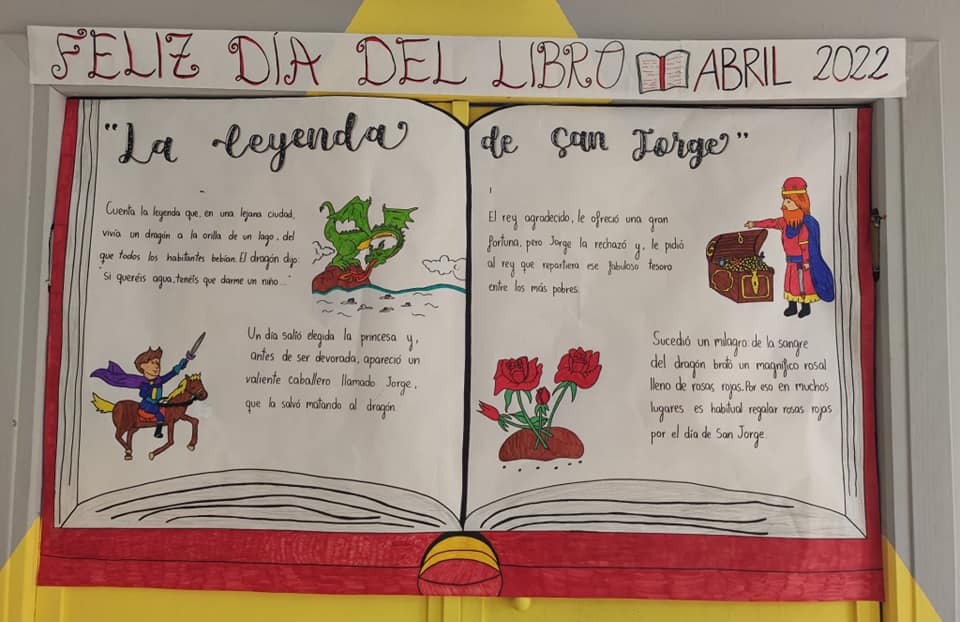 FELIZ DÍA DEL LIBRO ABRIL 2022
"La leyenda
Cuenta la leyenda que, en una lejana ciudad,
vivía un dragón a la orilla de un lago, del
que todos los habitantes bebían. El dragón dijo:
"Si queréis agua, tenéis que darme un niño..."
Un día salió elegida la princesa y,
antes de ser devorada, apareció un
valiente caballero llamado Jorge,
que la salvó matando al dragón.
de San Jorge"
El rey agradecido, le ofreció una gran
fortuna, pero Jorge la rechazó y, le pidió
al rey que repartiera ese fabuloso tesoro
entre los más pobres.
Sucedió un milagro: de la sangre
del dragón brotó un magnífico rosal
lleno de rosas rojas. Por eso en muchos
lugares es habitual regalar rosas rojas
por el día de San Jorge.